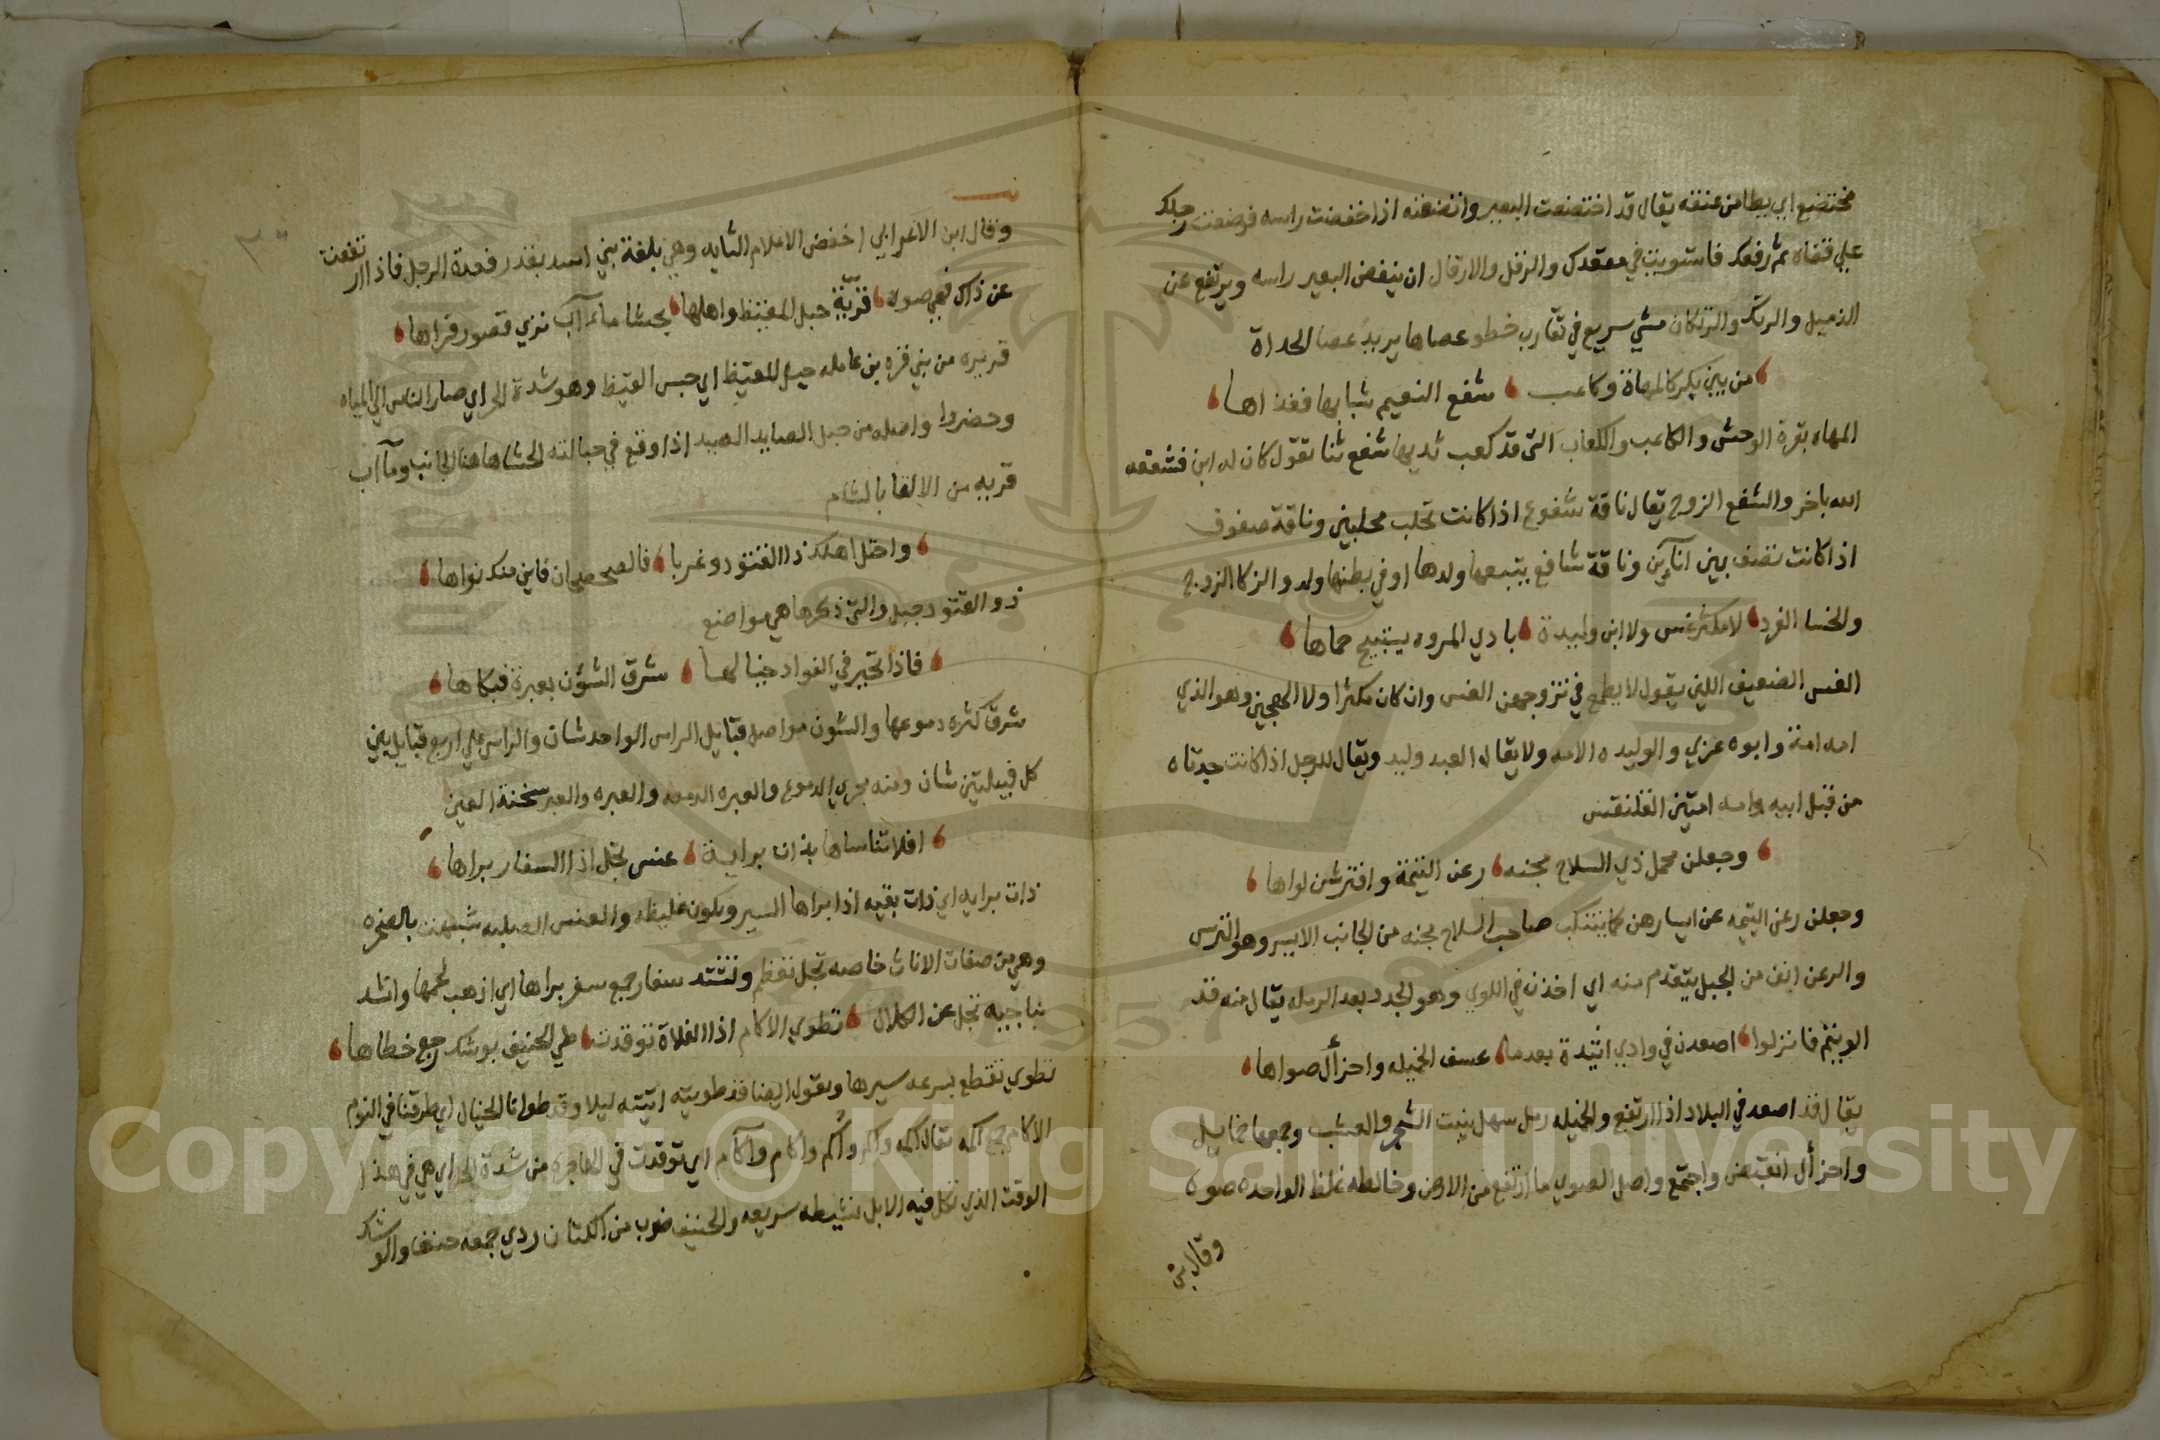 مختضع اي يطا من عنقه يقال قد اختضعت البعير واتضعته اذا خفضت راسه فوضعت رجلك
علي قفاه ثم رفعك فاستويت في مقعدك والزفل والارقال ان ينفض البعير راسه ويرتفع عن
الذميل والرتك والرتكان مشي سريع في تقارب خطو عصاها يريد عصا الحداة
من بين بكر كالمهاة وكاعب شفع النعيم شبابها فغذاها
المهاه بقرة الوحش والكاعب والكعاب التي قد كعب ثديها شفع ثنا تقول كان له ابن فشفعه
الله باخر والشفع الزوج يقال ناقة شفوع اذا كانت تحلب محلبين وناقة صفوف
اذا كانت تصف بين انآين وناقة شافع يتبعها ولدها او في بطنها ولد والزكا الزوج
والخسا الفرد لا مكثر غس ولا ابن وليدة بادي المروه يستبيح حماها
الغس الضعيف اللئيم يقول لا يطمع في تزوجهن الغس وان كان مكثرا ولا الهجين وهو الذي
امه امة وابوه عربي والوليده الامه ولا يقال العبد وليد ويقال للرجل اذا كانت جدتاه
من قبل ابيه وامه امتين الفلنقس
وجعلن محمل ذي السلاح مجنه رعن اليتيمة وافترشن لواها
وجعلن رعن اليتيمه عن ايسارهن كما يتنكب صاحب السلاح مجنه من الجانب الايسر وهو الترس
والرعن انف من الجبل يتقدم منه اي اخذن في اللوي وهو الجدد بعد الرمله يقال منه قد
الويتم فانزلوا اصعدن في وادي اثيدة بعدما عسف الخميله واحزأل صواها
يقال قد اصعد في البلاد اذا ارتفع والخميله رمل سهل ينبت الشجر والعشب وجمعها خمايل
واحزأل انقبض واجتمع واصل الصوي ما ارتفع من الارض وخالطه غلظ الواحده صوة
وقال ابن
وقال ابن الاعرابي اخفض الاعلام الثايه وهي بلغة بني اسد بقدر قعدة الرجل فاذا ارتفعت
عن ذلك فهي صوه قريّة حبل المقيظ واهلها بحشا مآب تري قصور قراها
قريره من بني قره بن عامله حبل المقيظ اي حبس القيظ وهو شدة الحر اي صار الناس الي المياه
وحضروا واصله من حبل الصايد الصيد اذا وقع في حبالته الحشا هاهنا الجانب ومآب
قريه من البلقا بالشام
واحتل اهلك ذا القتود وغربا فالصحصحان فاين منك نواها
ذو القتود جبل والتي ذكرها هي مواضع
فاذا تحير في الفواد خيالها شرق الشؤن بعبرة فبكاها
شرق كثره دموعها والشون مواصل قبايل الراس الواحد شان والراس علي اربع قبايل بين
كل قبيلتين شان ومنه مجري الدموع والعبره الدمعه والعبره والعبر سخنة العين
افلا تناساها بذات براية عنس تجل اذا السفار براها
ذات برايه اي ذات بقيه اذا براها السير وتكون غليظه والعنس الصلبه شبهت بالصخره
وهي من صفات الاناث خاصه تجل تغظم وتشتد سفار جمع سفر براها اي اذهب لحمها وانشد
بناجيه تجل عن الكلال تطوي الاكام اذا الفلاة توقدت طي الخنيف بوشك رجع خطاها
تطوي تقطع بسرعه سيرها وتقول ايضا قد طويته اتيته ليلا وقد طوانا الخيال اي طرقنا في النوم
الاكام جمع اكمه يقال اكمه واكم واُكُم واكام وآكام اي توقدت في الهاجره من شدة الحر اي هي في هذا
الوقت الذي تكل فيه الابل نشيطه سريعه والخنيف ضرب من الكتان ردي جمعه خنف والوشك
Copyright © King Saud University
1957